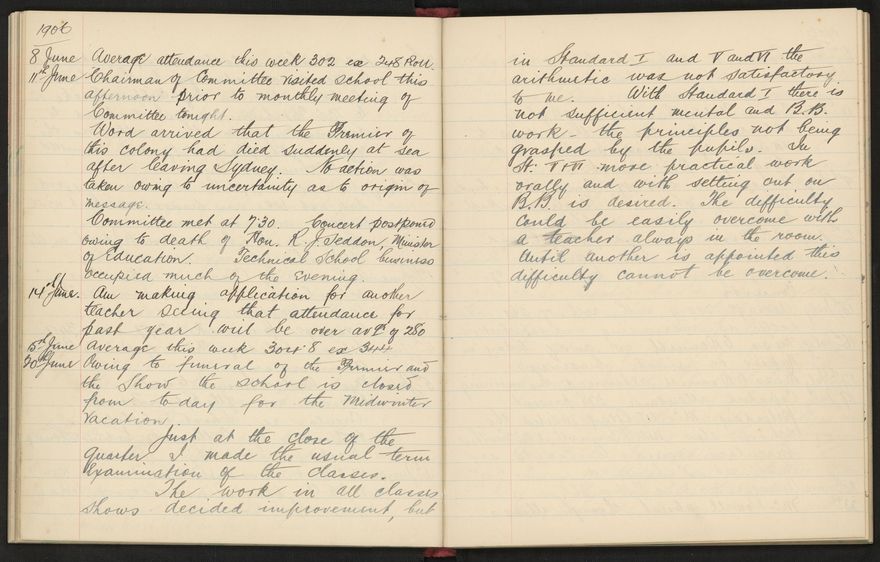 1906
8 June Average attendance this week 302 ex 348 Roll.
11th June Chairman of Committee visited school this
afternoon prior to monthly meeting of
Committee tonight.
Word arrived that the Premier of
this colony had died suddenly at sea
after leaving Sydney. No action was
taken owing to uncertainty as to origin of
message.
Committee met at 7:30. Concert postponed
owing to death of Hon. R. J. Seddon, Minister
of Education. Technical School business
occupied much of the evening.
14th June. Am making application for another
teacher seeing that attendance for
past year will be over avge of 280
15th June Average this week 304.8 ex 344
20th June Owing to funeral of the Premier and
the Show the school is closed
from today for the Midwinter
Vacation
Just at the close of the
quarter I made the usual term
Examination of the classes.
The work in all classes
shows decided improvement, but
in Standard I and V and VI the
arithmetic was not satisfactory
to me. With Standard I there is
not sufficient mental and B.B.
work - the principles not being
grasped by the pupils. In
St. V & VI more practical work
orally and with setting out on
B.B. is desired. The difficulty
could be easily overcome with
a teacher always in the room.
Until another is appointed this
difficulty cannot be overcome.